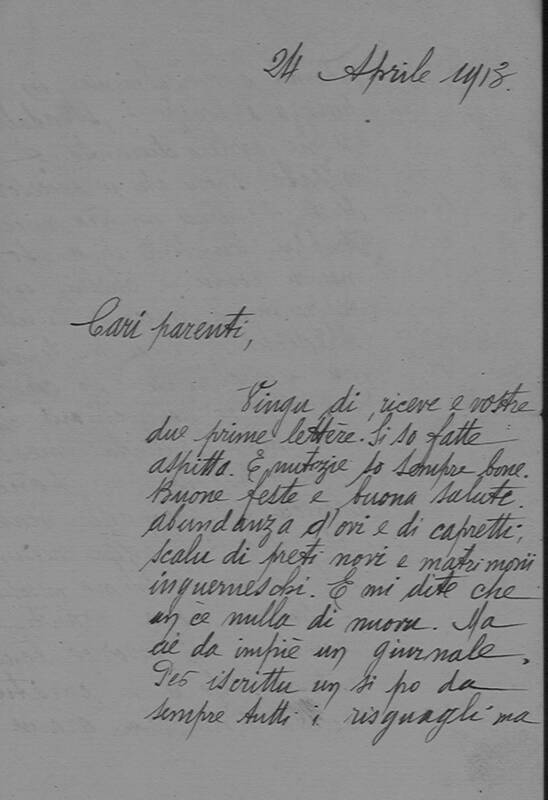 24 Aprile 1913.
Cari parenti,
Vingu di riceve e vostre
due prime lettere. Si so fatte
aspittà. E nutizie so sempre bone.
Buone feste e buona salute.
abundanza d'ovi e di capretti,
scalu di preti novi e matrimonii
inguerneschi. E mi dite che
un c'è nulla di nuovu. Ma
cie da impiè un giurnale.
Per iscrittu un si po da
sempre tutti i risguagli ma